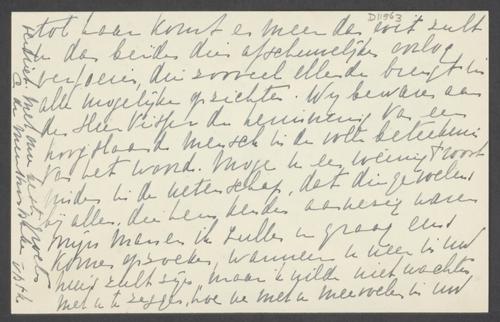 D11963
tot haar komt en meer dan ooit zult
u dan beiden die afschuwelijke oorlog
die zooveel ellende brengt in
alle mogelijke opzichten. Wij bewaren aan
den Heer Visser de herinnering van een
hoogstaand mensch in de volle beteekenis
van het woord. Moge u een weinig troost
vinden in de wetenschap, dat die gevoelens
bij allen, die hem kenden aanwezig waren
Mijn man en ik zullen u graag eens
komen opzoeken, wanneer u weer in uw
huis zult zijn, maar ik wilde niet wachten
met u te zeggen, hoe we met u meevoelen in uw
verdriet. Met mijn groeten